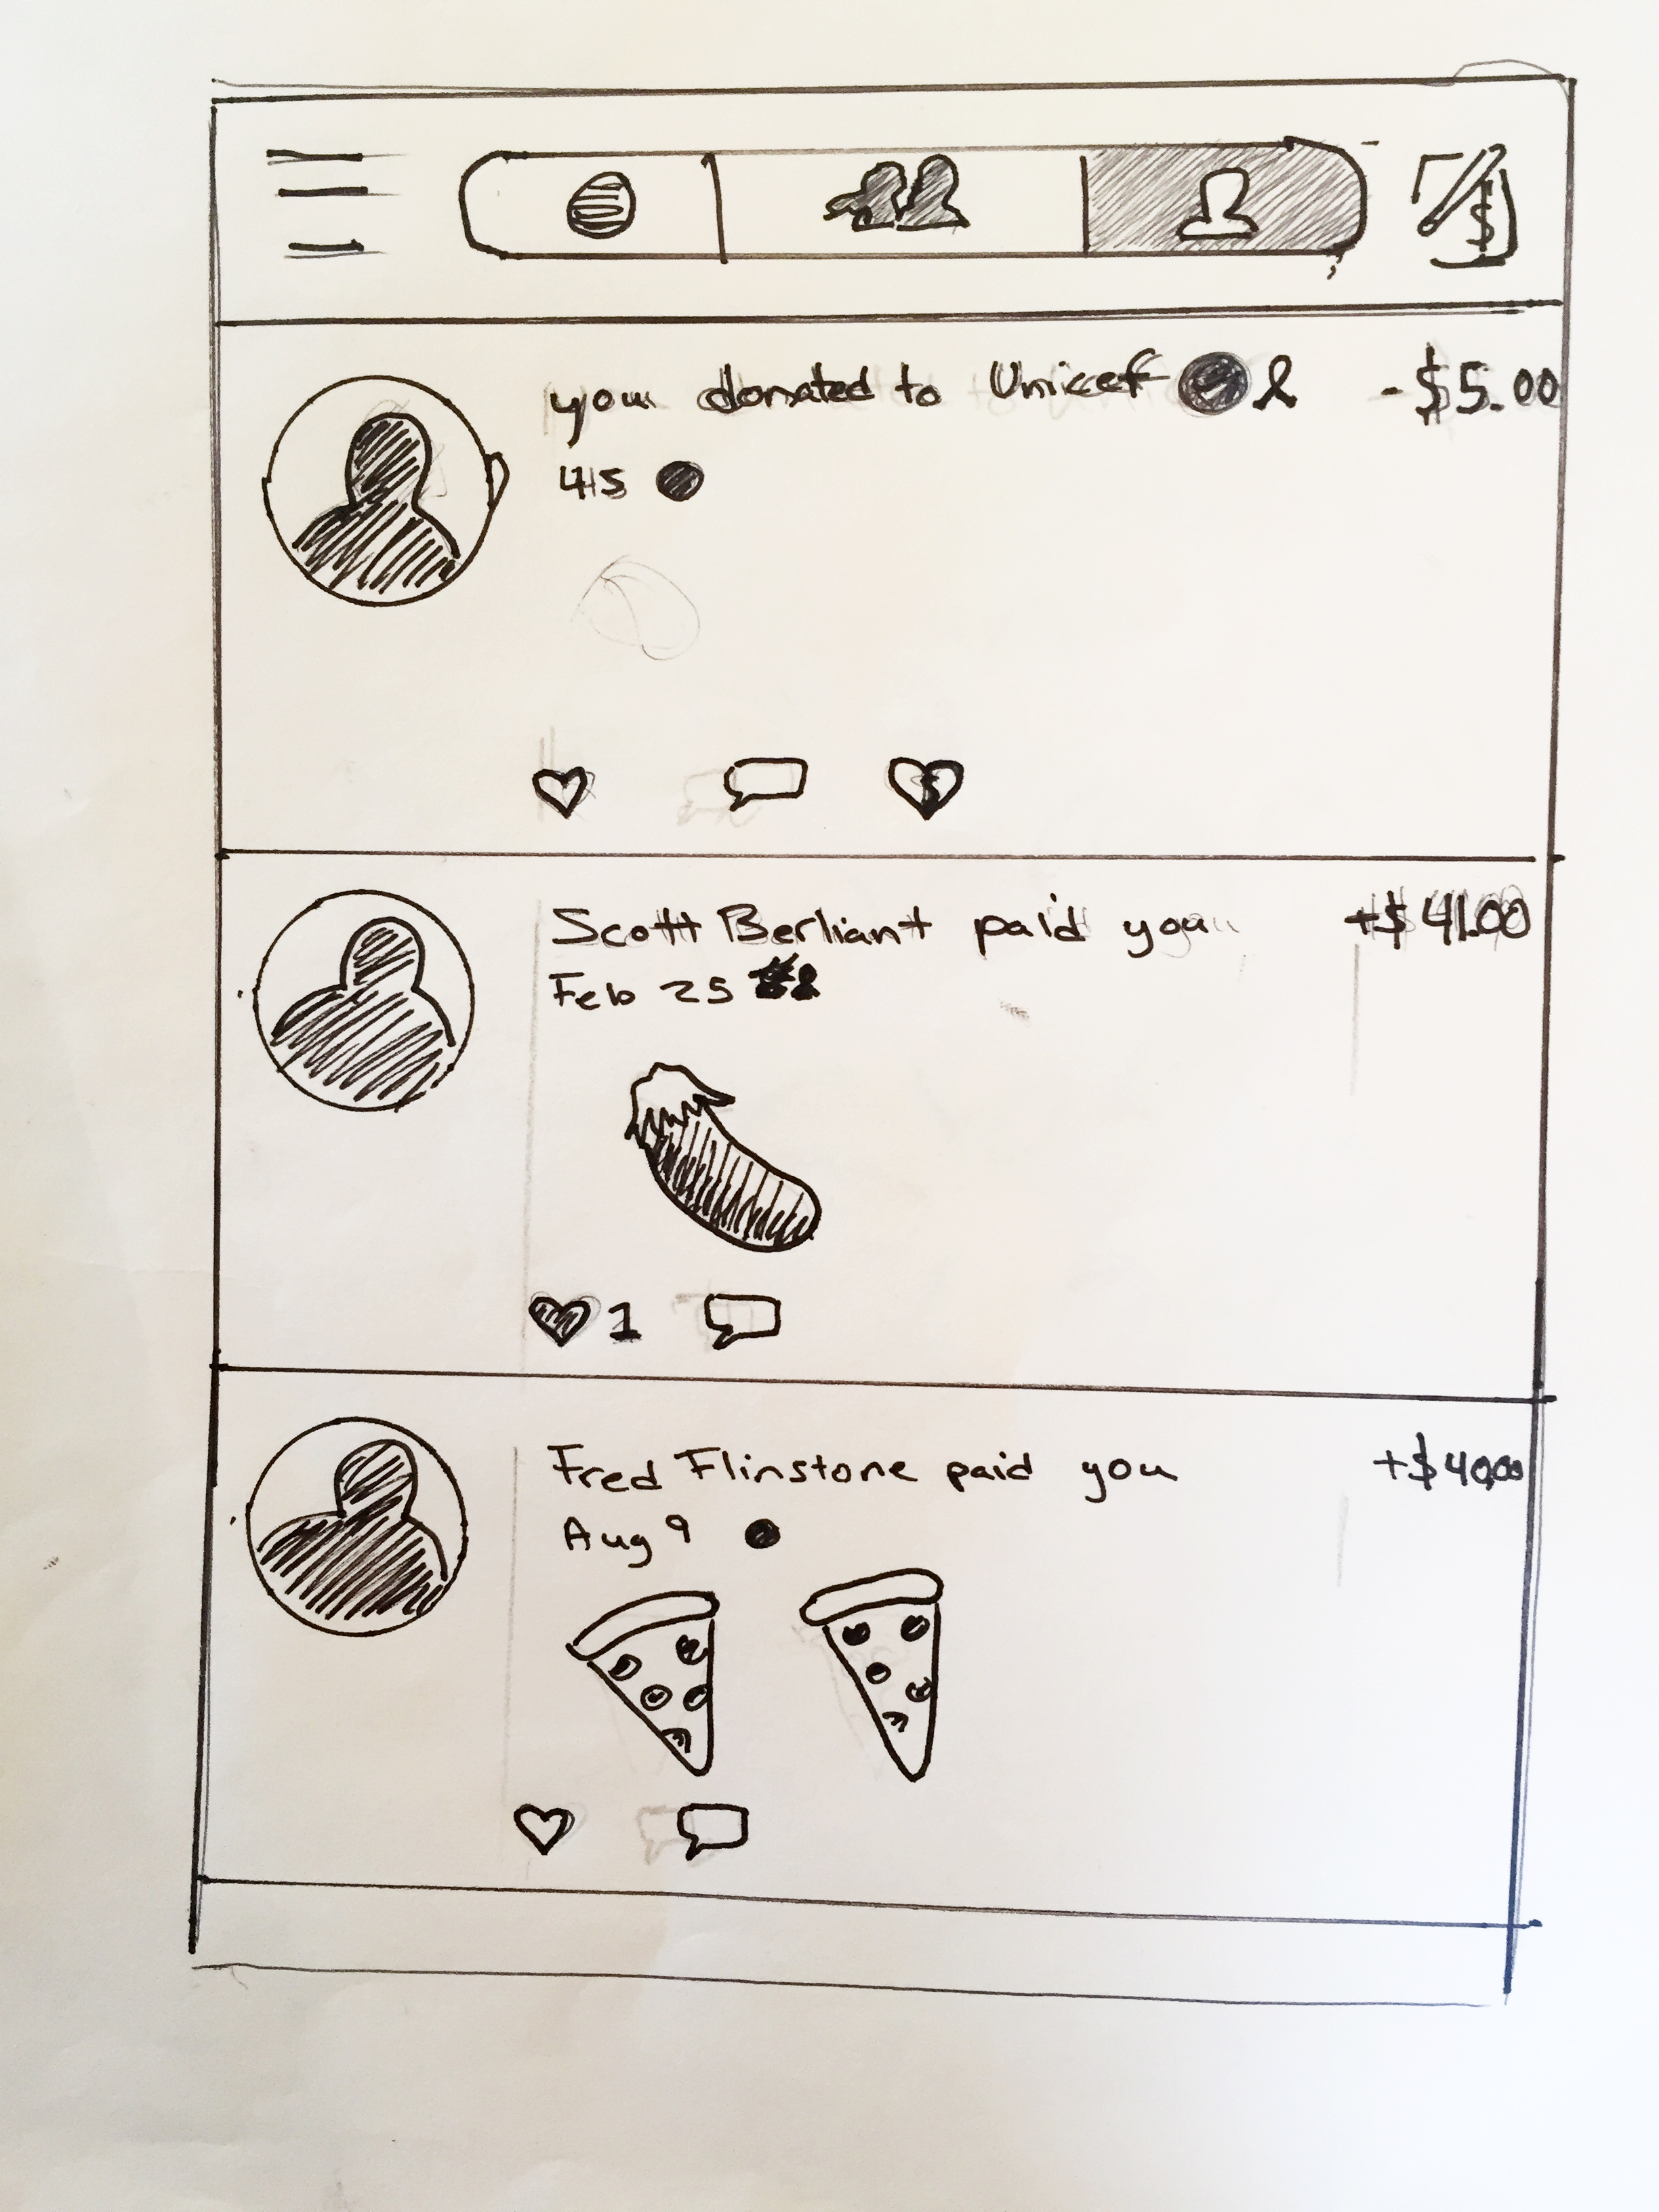 you donated to Unicef -$5.00
Scott Berliant paid you +$41.00
Feb 25
1
Fred Flinstone paid you +$40.00
Aug 9